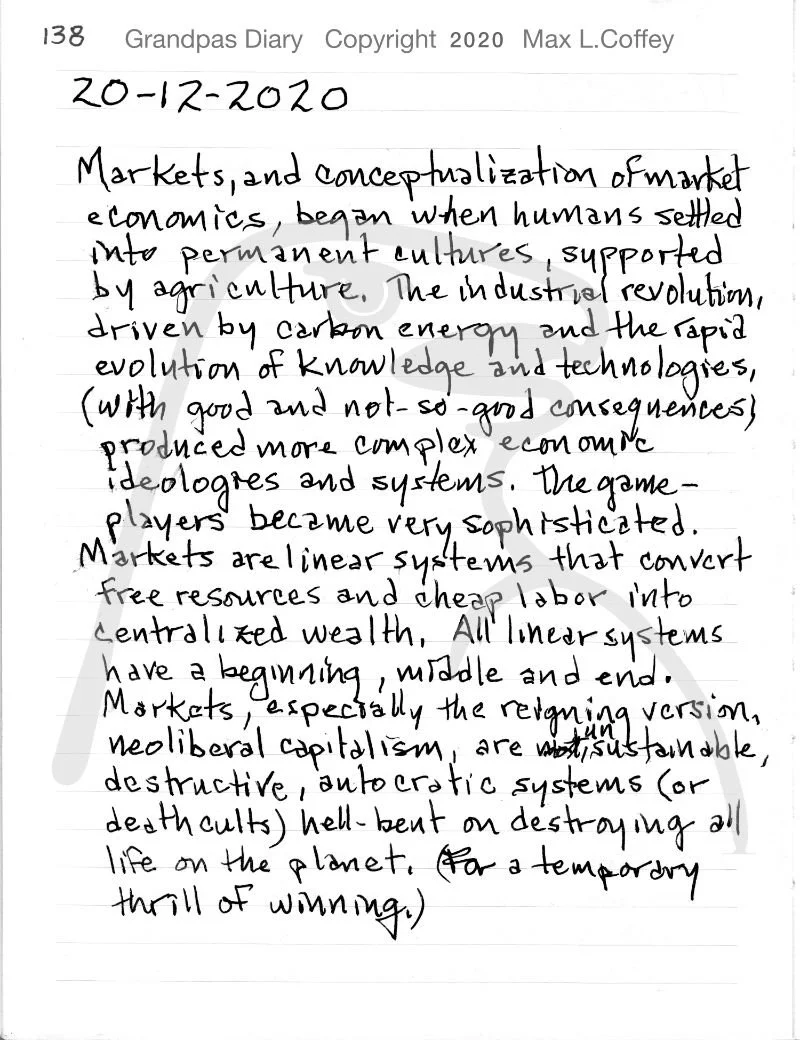 138 Grandpas Diary Copyright 2020 Max L.Coffey
20-12-2020
Markets, and conceptualization of market
economics, began when humans settled
into permanent cultures, supported
by agriculture. The industrial revolution,
driven by carbon energy and the rapid
evolution of knowledge and technologies,
(with good and not-so-good consequences)
produced more complex economic
ideologies and systems. The game-
players became very sophisticated.
Markets are linear systems that convert
free resources and cheap labor into
centralized wealth. All linear systems
have a beginning, middle and end.
Markets, especially the reigning version,
neoliberal capitalism, are unsustainable,
destructive, autocratic systems (or
death cults) hell-bent on destroying all
life on the planet. (For a temporary
thrill of winning.)